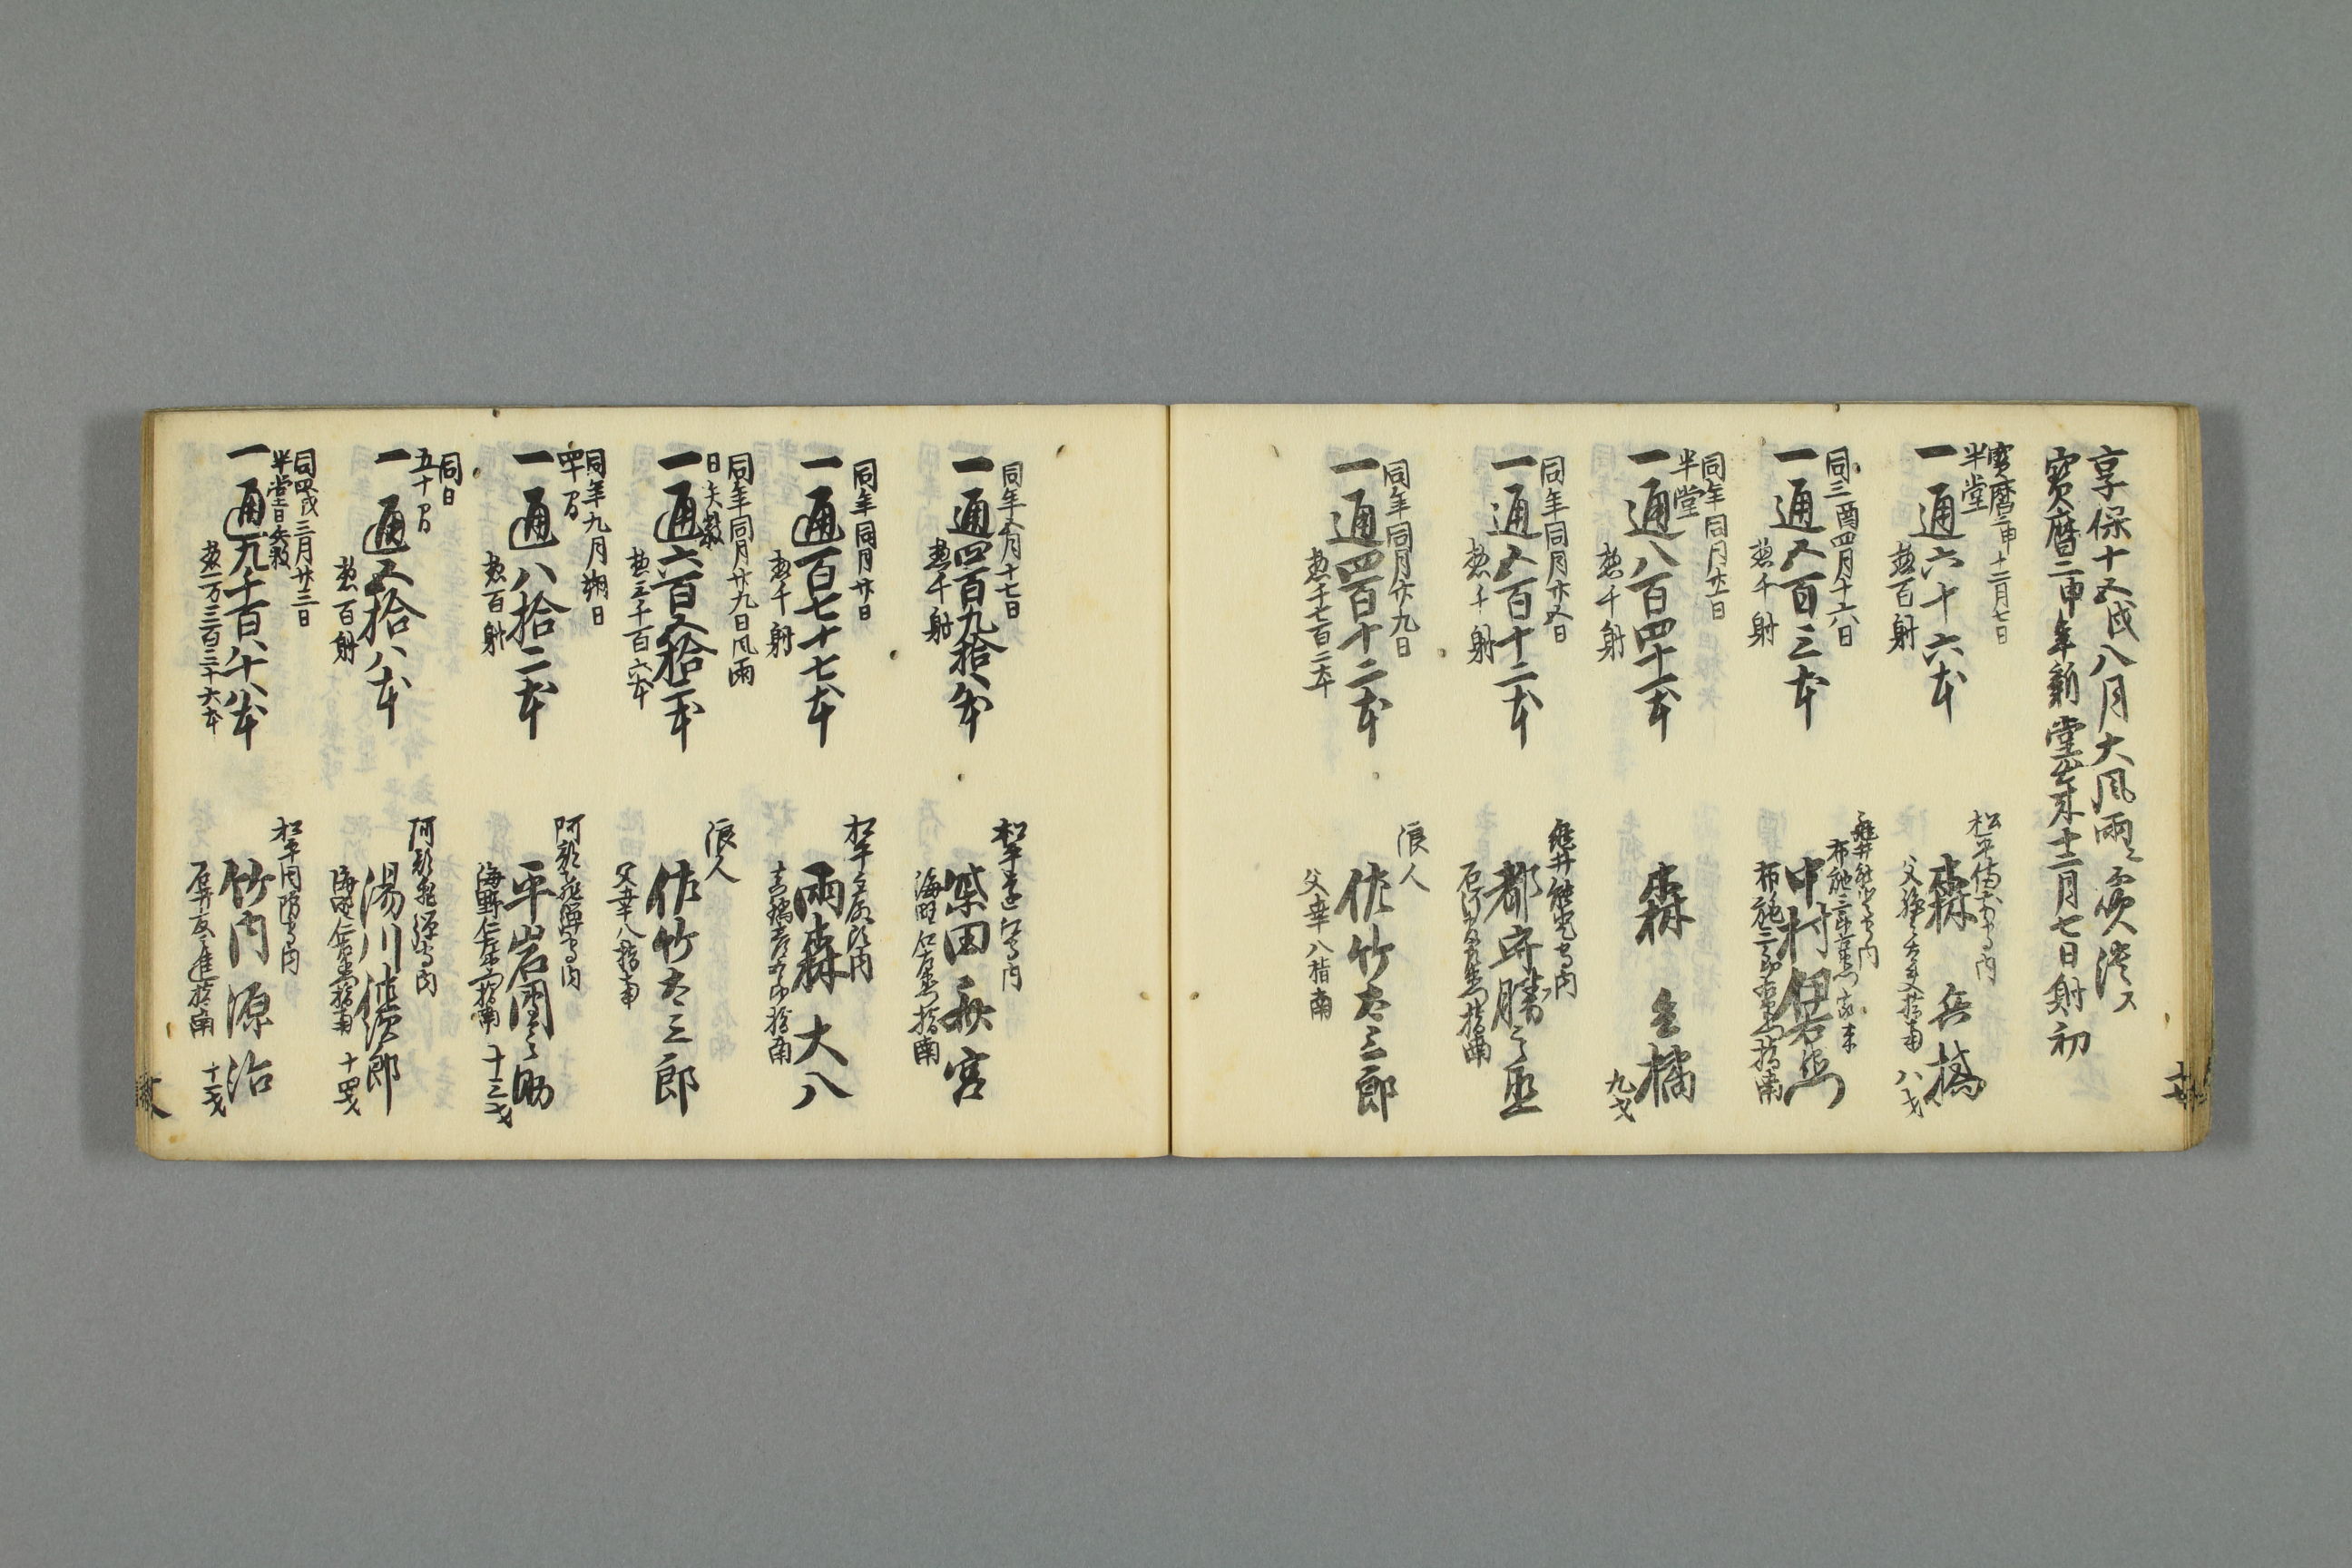 享保十五戌八月大風雨ニ而頽落ス
寳暦二申年新堂出来十二月七日射初
寳暦二申十二月七日
半堂
一通六十六本
惣百射
松平備前守内
森兵橘
八才
同三酉四月十六日
一通五百三本
惣千射
亀井能登守内
中村伊右衛門
布施三郎右衛門指南
同年同月廿五日
半堂
一通八百四十一本
惣千射
森金橘
九才
同年同月廿五日
一通五百十二本
惣千射
亀井能登守内
都守勝之丞
同年同月廿九日
一通四百十二本
惣千七百二本
浪人
佐竹太三郎
父幸八指南
同年五月十七日
一通四百九拾八本
惣千射
松平遠江守内
柴田森宮
海野仁左衛門指南
同年同月廿日
一通百七十七本
惣千射
雨森大八
同年同月廿九日風雨
日矢数
一通六百五拾一本
惣三千百六本
浪人
佐竹太三郎
父幸八指南
同年九月朔日
四十間
一通八拾二本
惣百射
阿部飛騨守内
平岩園之助
海野仁左衛門指南 十三才
同日
五十間
一通五拾八本
惣百射
阿部飛騨守内
湯川儀次郎
海野仁左衛門指南 十四才
同四戌三月廿三日
半堂日矢数
一通九千百八十八本
惣一万三百三十六本
松平周防守内
竹内源治
石井友之進指南 十一才